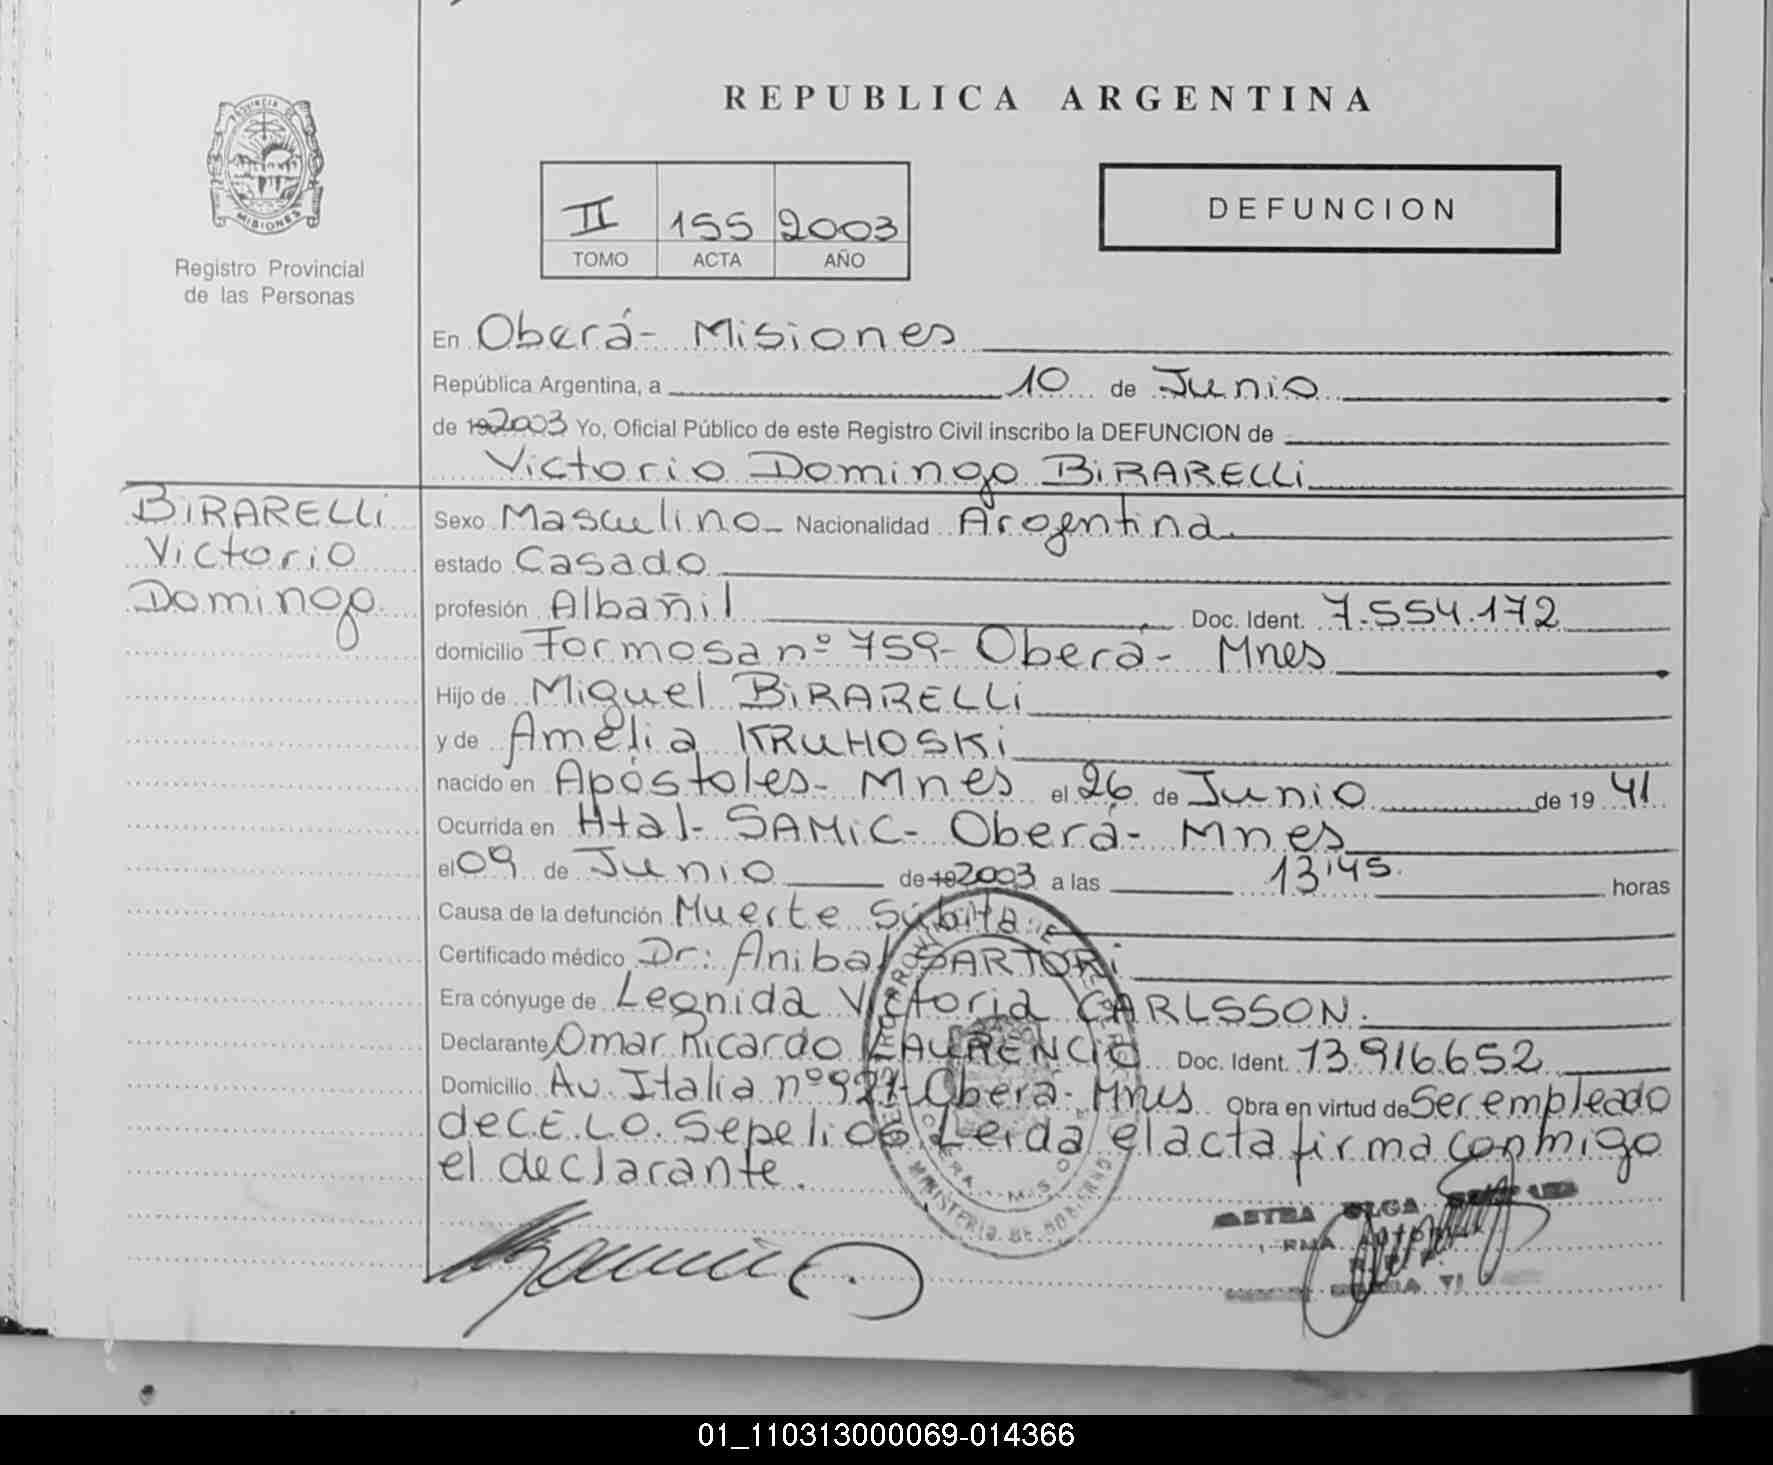 REPUBLICA ARGENTINA
PROVINCIA DE
MISIONES
Registro Provincial
de las Personas
II 155 2003
TOMO ACTA AÑO
DEFUNCION
En Oberá - Misiones
República Argentina, a 10 de Junio
de 19 2003 Yo, Oficial Público de este Registro Civil inscribo la DEFUNCION de
Victorio Domingo BiRARELLi
BiRARELLi
Victorio
Domingo
Sexo Masculino - Nacionalidad Argentina
estado Casado
profesión Albañil Doc. Ident. 7.554.172
domicilio Formosa nº 759 - Oberá - Mnes
Hijo de Miguel BiRARELLi
y de Amelia KRUHOSKi
nacido en Apóstoles - Mnes el 26 de Junio de 19 41
Ocurrida en Htal - SAMiC - Oberá - Mnes
el 09 de Junio de 19 2003 a las 13:45 horas
Causa de la defunción Muerte Súbita
Certificado médico Dr: Anibal SARTORi
Era cónyuge de Leonida Victoria CARLSSON.
Declarante Omar Ricardo LAURENCiC Doc. Ident. 13.916.652
Domicilio Av. Italia nº 927 - Oberá - Mnes Obra en virtud de Ser empleado
de C.E.L.O. Sepelios. Leida el acta firma conmigo
el declarante.
MINISTERIO DE GOBIERNO
OLGA
01_110313000069-014366